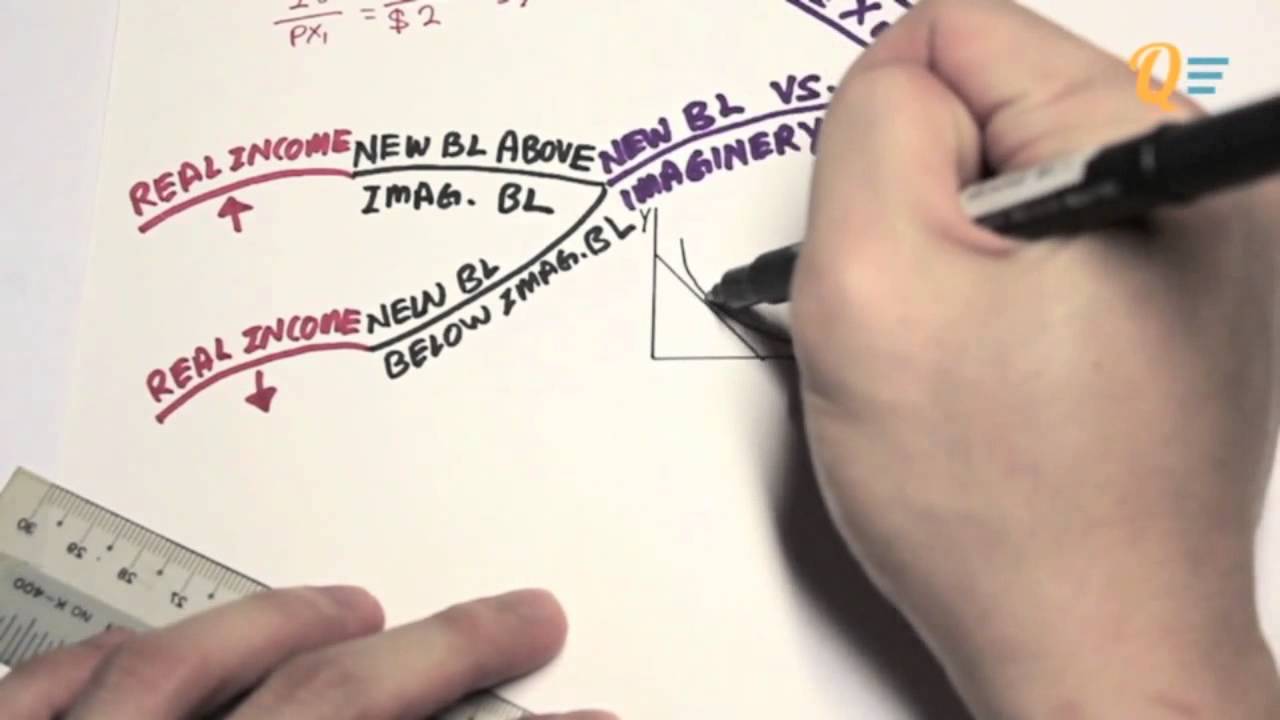 PX₁ = $2
NEW BL VS.
IMAGINERY
REAL INCOME
↑
NEW BL ABOVE
IMAG. BL
REAL INCOME
↓
NEW BL
BELOW IMAG. BL
Y
30
29
28
27
NO K-400
Q